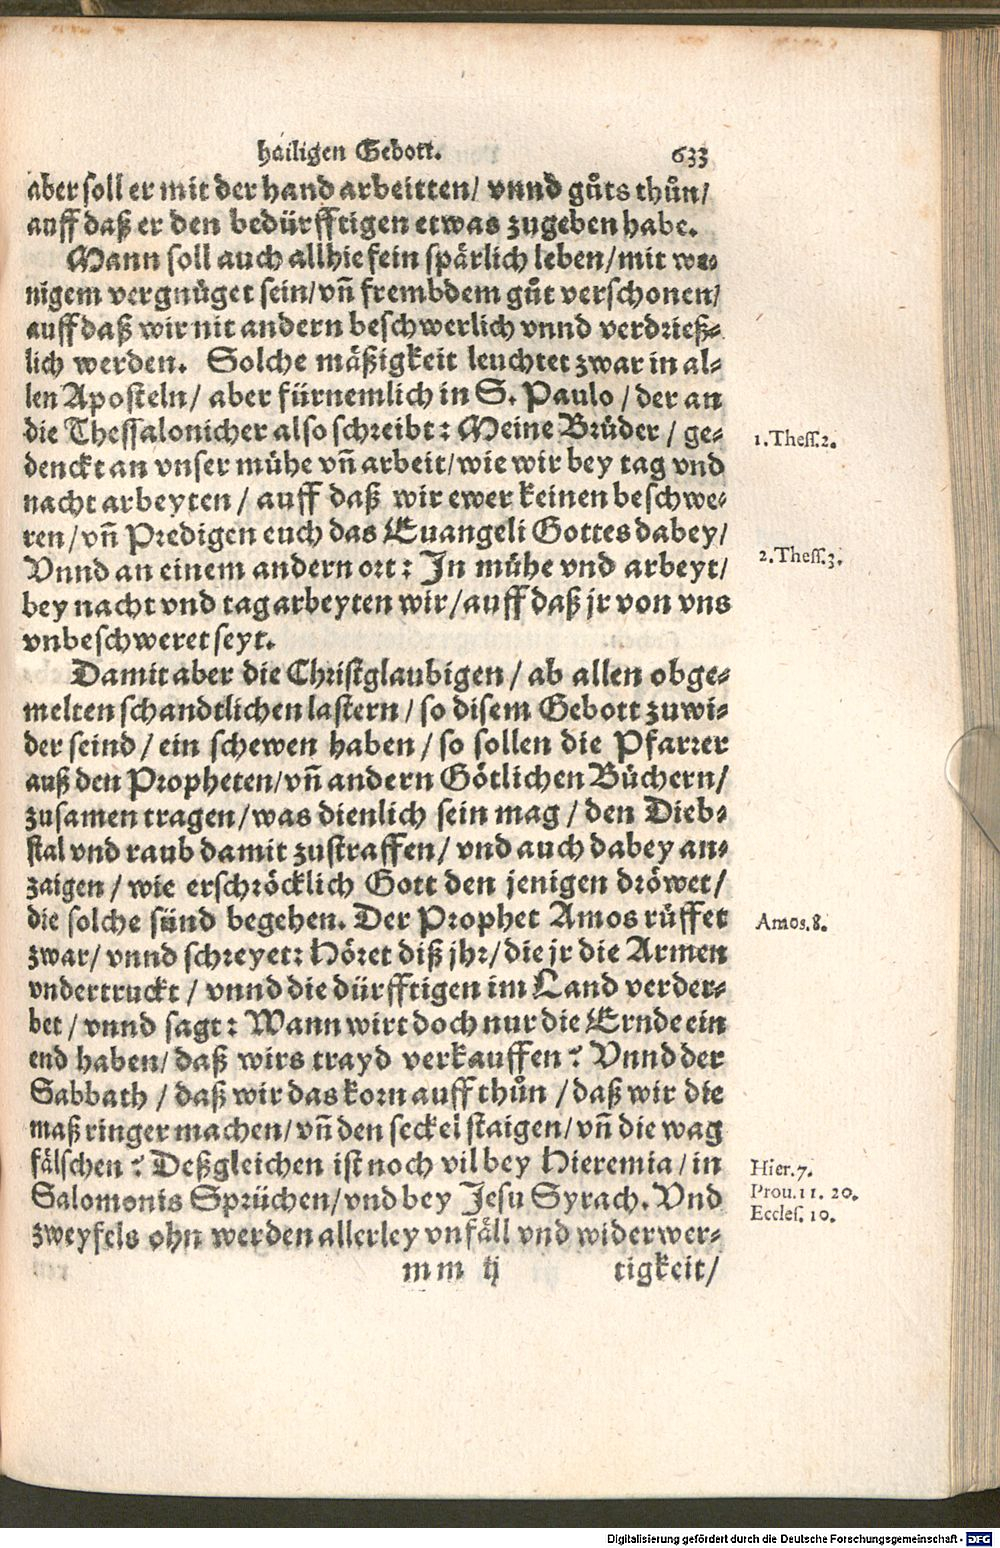 hailigen Gebott. 633
aber soll er mit der hand arbeitten/ vnnd gůts thůn/
auff daß er den bedürfftigen etwas zugeben habe.
Mann soll auch allhie fein spärlich leben/ mit we⸗
nigem vergnüget sein/ vñ frembdem gůt verschonen/
auff daß wir nit andern beschwerlich vnnd verdrieß⸗
lich werden. Solche mäßigkeit leuchtet zwar in al⸗
len Aposteln/ aber fürnemlich in S. Paulo / der an
die Thessalonicher also schreibt: Meine Brüder / ge⸗
denckt an vnser mühe vñ arbeit/ wie wir bey tag vnd
nacht arbeyten / auff daß wir ewer keinen beschwe⸗
ren/ vñ Predigen euch das Euangeli Gottes dabey/
Vnnd an einem andern ort: In mühe vnd arbeyt/
bey nacht vnd tag arbeyten wir/ auff daß jr von vns
vnbeschweret seyt.
Damit aber die Christglaubigen / ab allen obge⸗
melten schandtlichen lastern / so disem Gebott zuwi⸗
der seind / ein schewen haben / so sollen die Pfarrer
auß den Propheten/ vñ andern Götlichen Büchern/
zusamen tragen/ was dienlich sein mag / den Dieb⸗
stal vnd raub damit zustraffen/ vnd auch dabey an⸗
zaigen / wie erschröcklich Gott den jenigen dröwet/
die solche sünd begehen. Der Prophet Amos rüffet
zwar/ vnnd schreyet: Höret diß jhr/ die jr die Armen
vndertruckt / vnnd die dürfftigen im Land verder⸗
bet / vnnd sagt: Wann wirt doch nur die Ernde ein
end haben/ daß wirs trayd verkauffen? Vnnd der
Sabbath / daß wir das korn auff thůn / daß wir die
maß ringer machen/ vñ den seckel staigen/ vñ die wag
fälschen? Deßgleichen ist noch vil bey Hieremia/ in
Salomonis Sprüchen/ vnd bey Jesu Syrach. Vnd
zweyfels ohn werden allerley vnfäll vnd widerwer⸗
mm ij tigkeit/
1. Thess. 2.
2. Thess. 3.
Amos. 8.
Hier. 7.
Prou. 11. 20.
Eccles. 10.
Digitalisierung gefördert durch die Deutsche Forschungsgemeinschaft - DFG